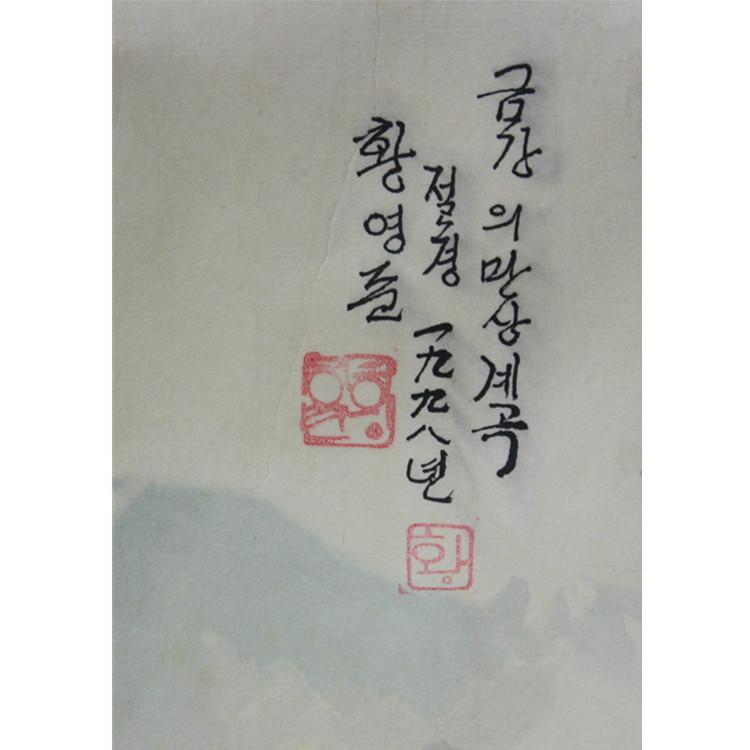 금강 의만상계곡
절경 一九九八년
황영준
황